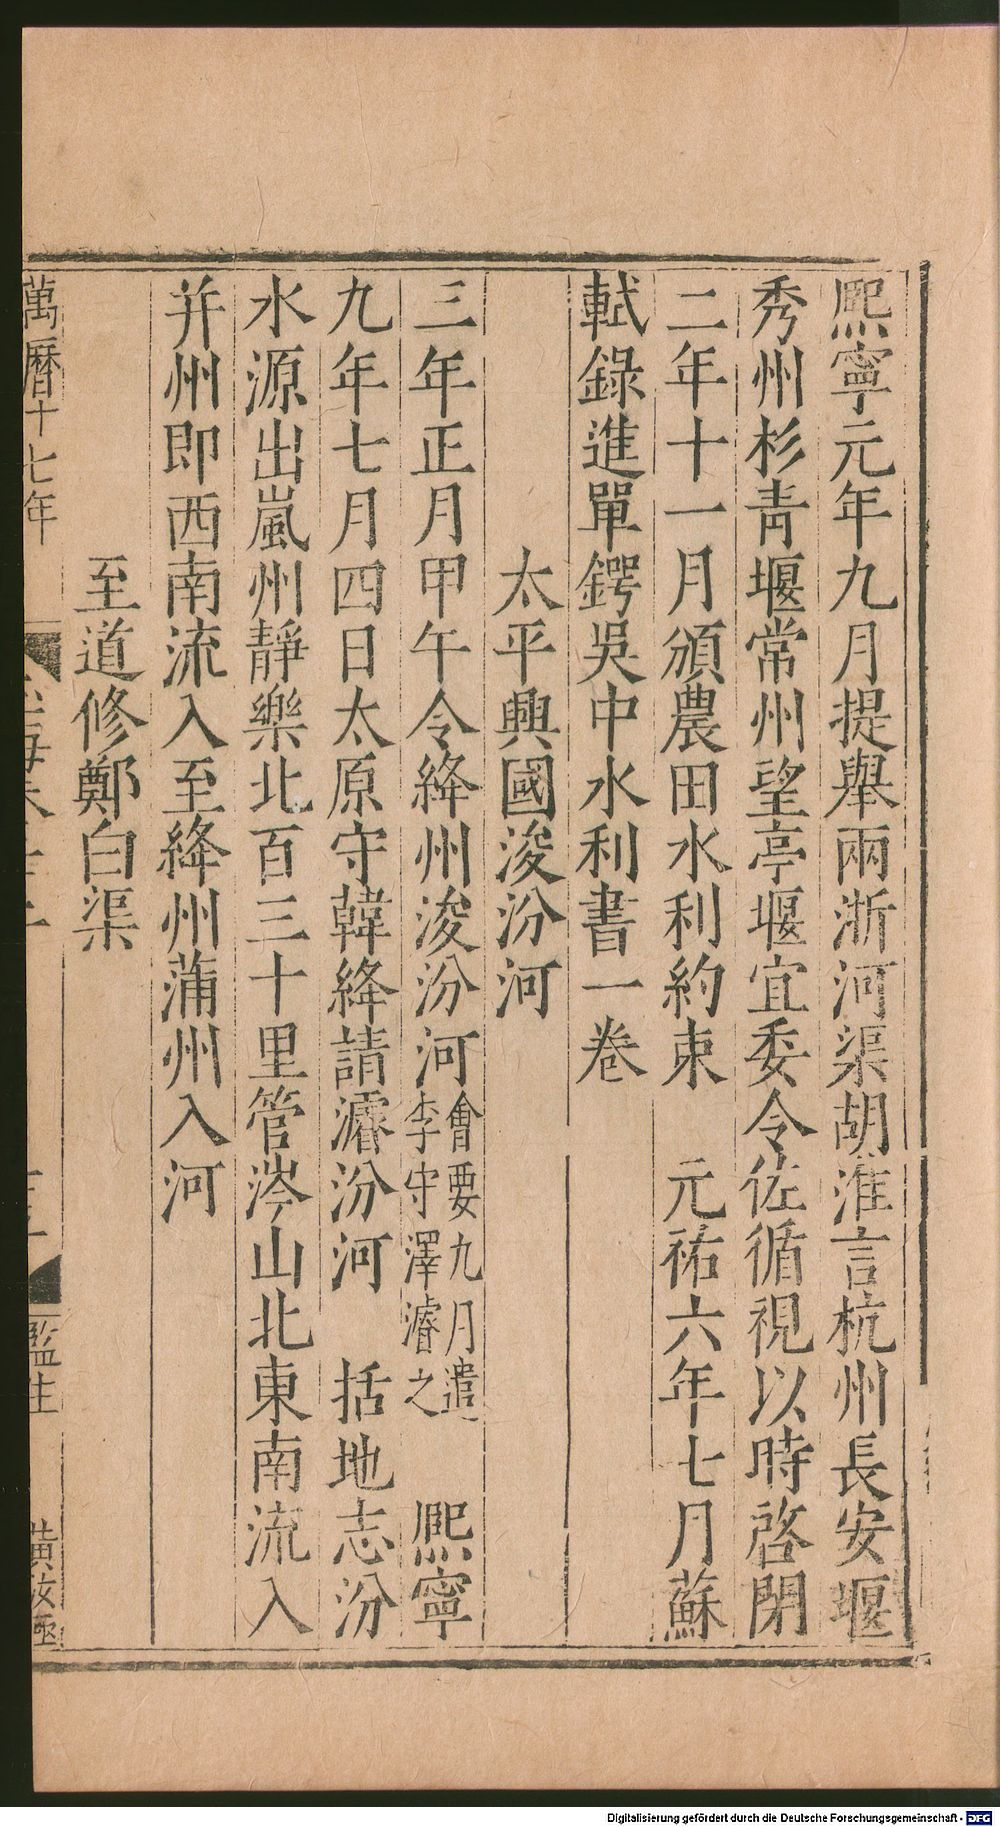 熈寧元年九月提舉兩浙河渠胡淮言杭州長安堰
秀州杉青堰常州望亭堰宜委令佐循視以時啓閉
二年十一月頒農田水利約束　元祐六年七月蘇
軾錄進單鍔吳中水利書一卷
太平興國浚汾河
三年正月甲午令絳州浚汾河會要九月遣李守澤濬之　熈寧
九年七月四日太原守韓絳請濬汾河　括地志汾
水源出嵐州靜樂北百三十里管涔山北東南流入
并州即西南流入至絳州蒲州入河
至道修鄭白渠
萬曆十七年
監生
Digitalisierung gefördert durch die Deutsche Forschungsgemeinschaft - DFG